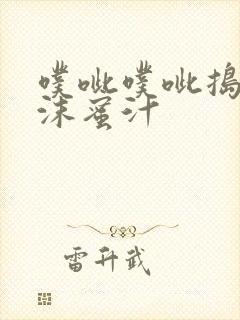 噗呲噗呲搗
沫蜜汁
雷升武